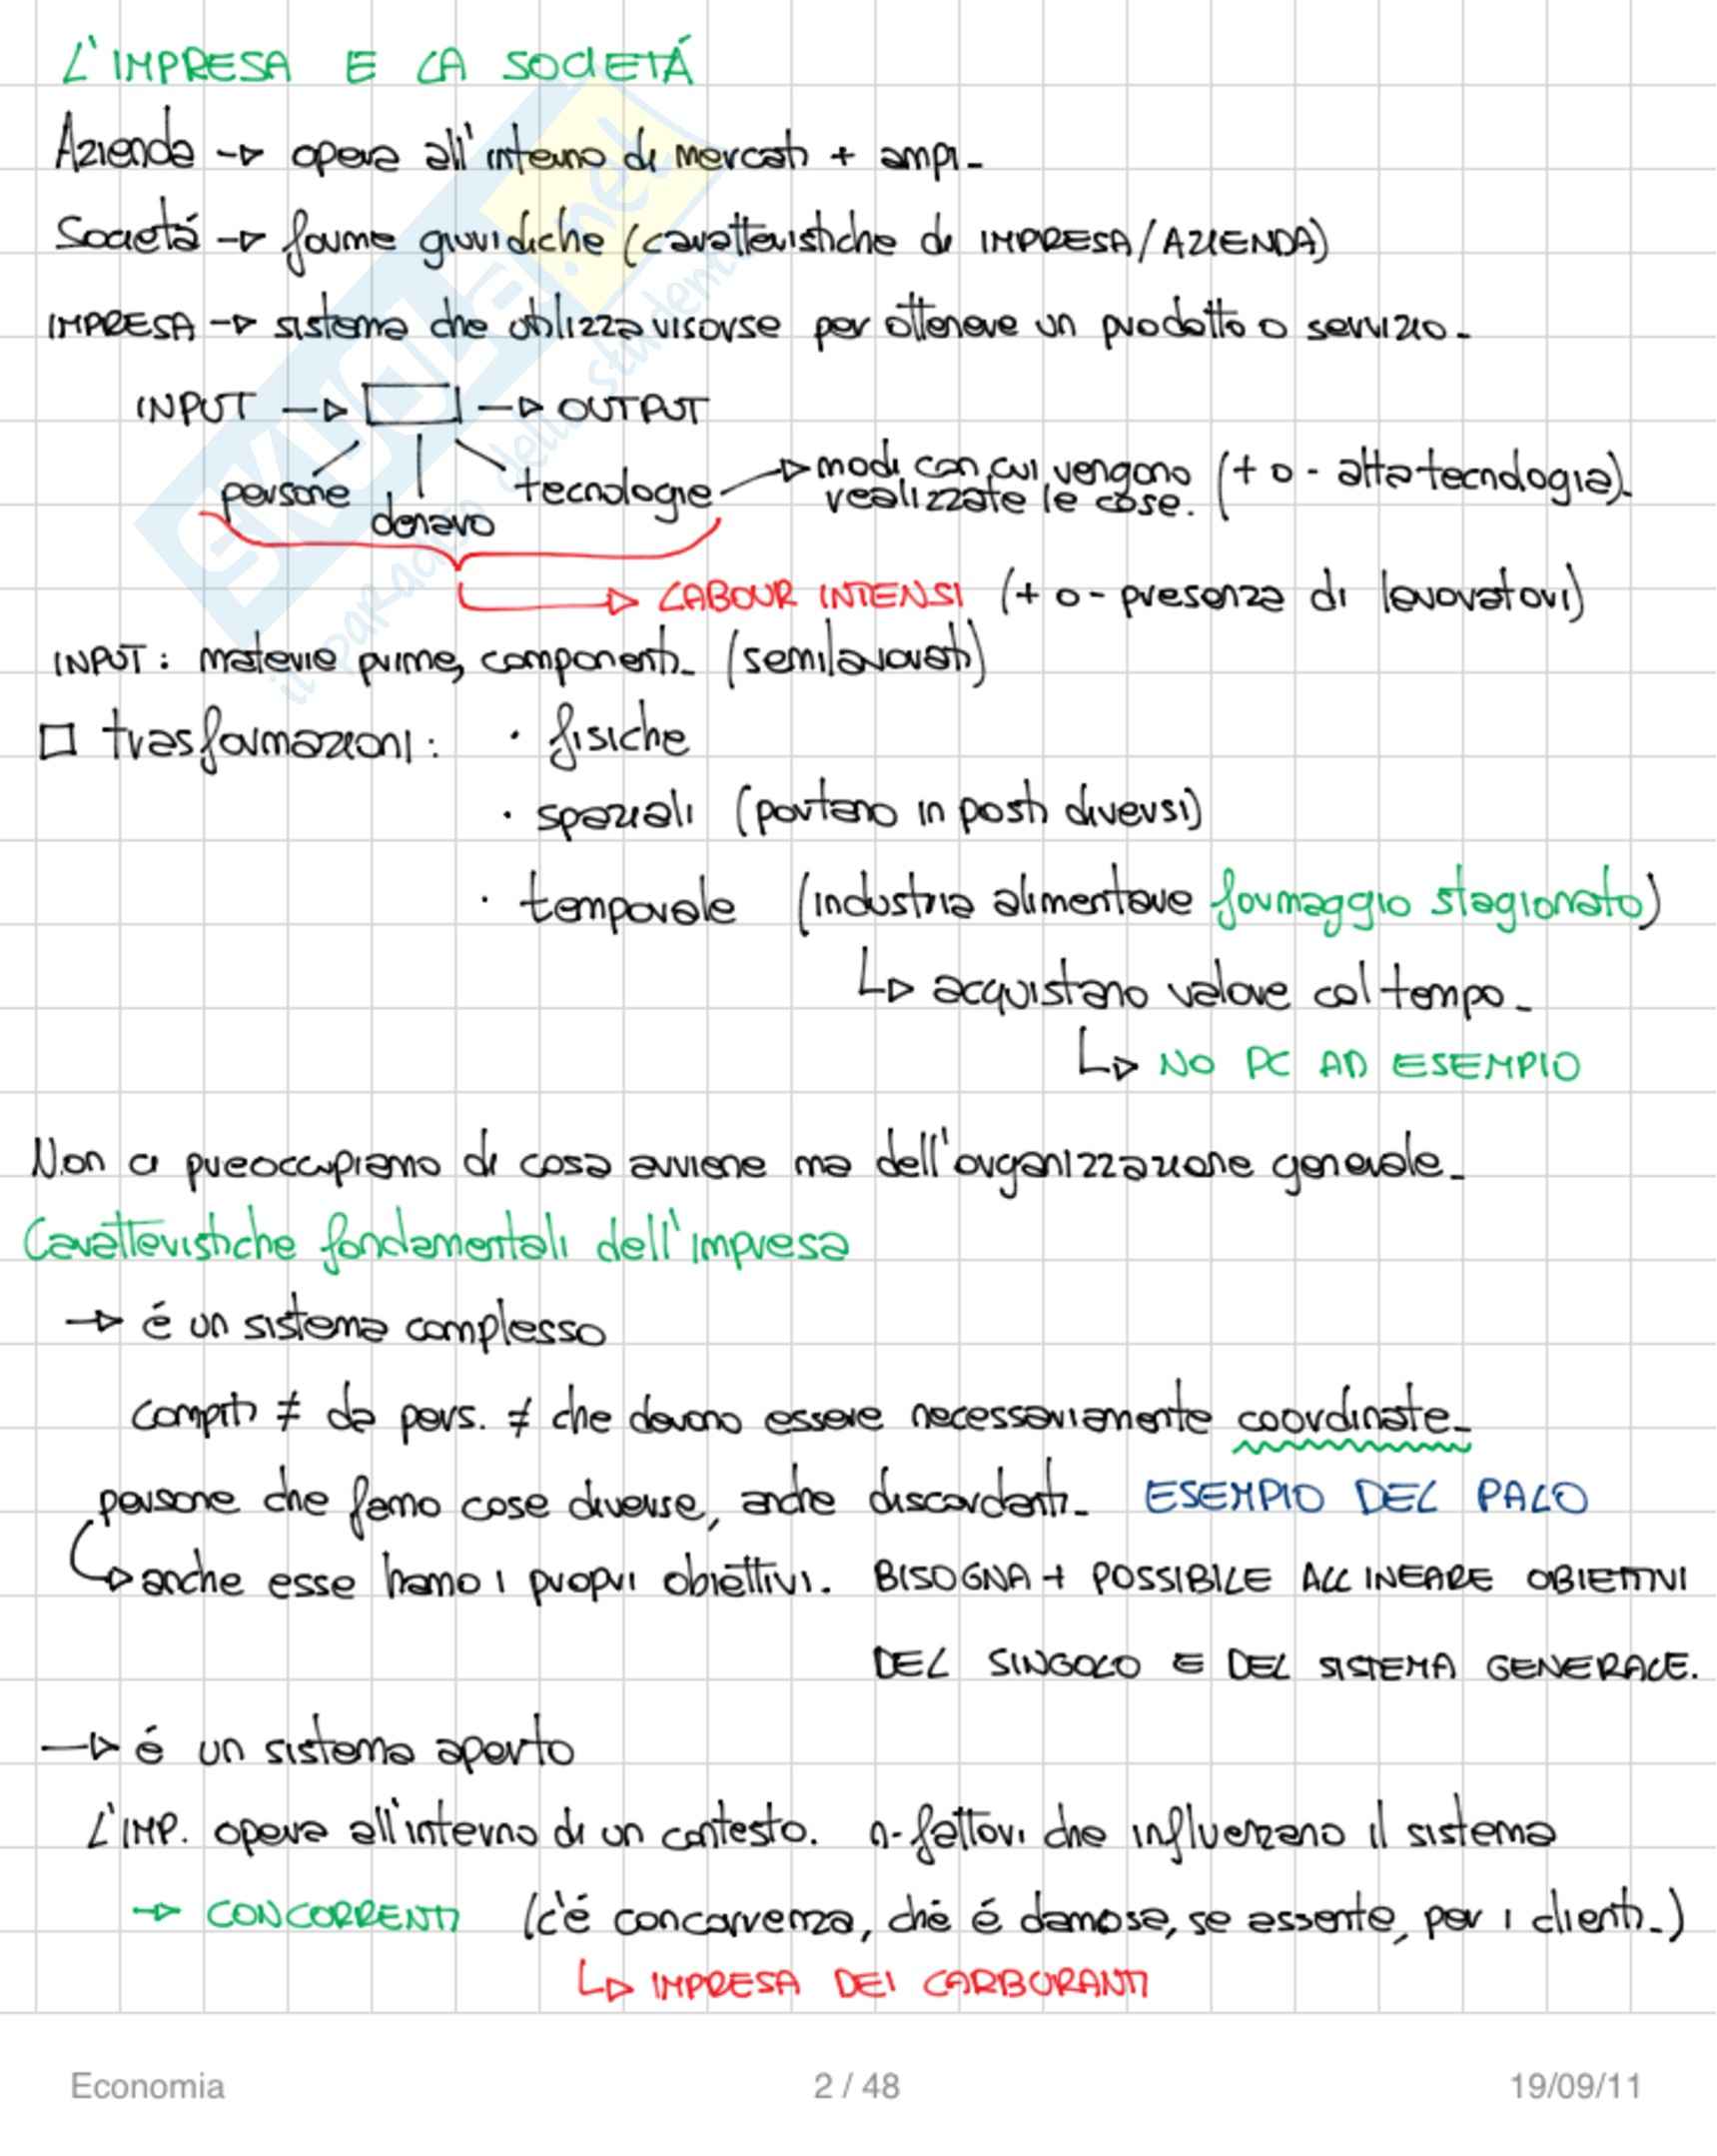 L'IMPRESA E LA SOCIETÁ
Azienda → opera all'interno di mercati + ampi-
Societá → forme giuridiche (caratteristiche di IMPRESA/AZIENDA)
IMPRESA → sistema che utilizza risorse per ottenere un prodotto o servizio-
INPUT → □ → OUTPUT
persone denaro tecnologie → modi con cui vengono realizzate le cose. (+ o - alta tecnologia)-
→ LABOUR INTENSI (+ o - presenza di lavoratori)
INPUT: materie prime, componenti- (semilavorati)
□ trasformazioni: · fisiche
· spaziali (portano in posti diversi)
· temporale (industria alimentare formaggio stagionato)
↳ acquistano valore col tempo-
↳ NO PC AD ESEMPIO
Non ci preoccupiamo di cosa avviene ma dell'organizzazione generale-
Caratteristiche fondamentali dell'impresa
→ é un sistema complesso
compiti ≠ da pers. ≠ che devono essere necessariamente coordinate-
persone che fanno cose diverse, anche discordanti- ESEMPIO DEL PALO
↳ anche esse hanno i propri obiettivi. BISOGNA + POSSIBILE ALLINEARE OBIETTIVI
DEL SINGOLO E DEL SISTEMA GENERALE.
→ é un sistema aperto
L'IMP. opera all'interno di un contesto. n-fattori che influenzano il sistema
→ CONCORRENTI (c'é concorrenza, ché é dannosa, se assente, per i clienti-)
↳ IMPRESA DEI CARBURANTI
Economia 2 / 48 19/09/11
SKUOLA.net
il paradiso dello studente